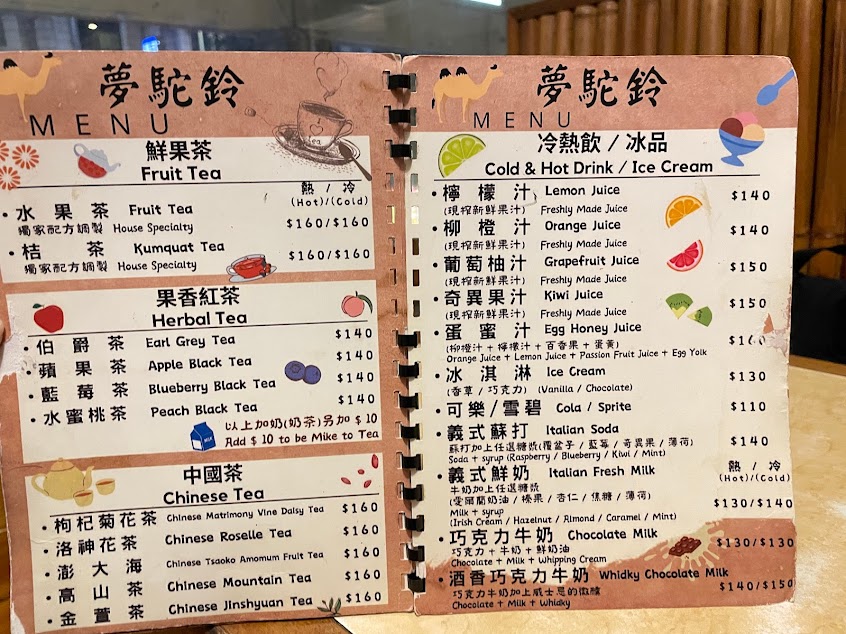 夢駝鈴
MENU
鮮果茶
Fruit Tea
熱 / 冷
(Hot)/(Cold)
・水果茶 Fruit Tea $160/$160
獨家配方調製 House Specialty
・桔茶 Kumquat Tea $160/$160
獨家配方調製 House Specialty
果香紅茶
Herbal Tea
・伯爵茶 Earl Grey Tea $140
・蘋果茶 Apple Black Tea $140
・藍莓茶 Blueberry Black Tea $140
・水蜜桃茶 Peach Black Tea $140
以上加奶(奶茶)另加 $10
Add $ 10 to be Mike to Tea
中國茶
Chinese Tea
・枸杞菊花茶 Chinese Matrimony Vine Daisy Tea $160
・洛神花茶 Chinese Roselle Tea $160
・澎大海 Chinese Tsaoko Amomum Fruit Tea $160
・高山茶 Chinese Mountain Tea $160
・金萱茶 Chinese Jinshyuan Tea $160
夢駝鈴
MENU
冷熱飲 / 冰品
Cold & Hot Drink / Ice Cream
・檸檬汁 Lemon Juice $140
(現搾新鮮果汁) Freshly Made Juice
・柳橙汁 Orange Juice $140
(現搾新鮮果汁) Freshly Made Juice
・葡萄柚汁 Grapefruit Juice $150
(現搾新鮮果汁) Freshly Made Juice
・奇異果汁 Kiwi Juice $150
(現搾新鮮果汁) Freshly Made Juice
・蛋蜜汁 Egg Honey Juice
(柳橙汁 + 檸檬汁 + 百香果 + 蛋黃)
Orange Juice + Lemon Juice + Passion Fruit Juice + Egg Yolk
・冰淇淋 Ice Cream $130
(香草 / 巧克力) (Vanilla / Chocolate)
・可樂/雪碧 Cola / Sprite $110
・義式蘇打 Italian Soda $140
蘇打加上任選糖漿(覆盆子 / 藍莓 / 奇異果 / 薄荷)
Soda + syrup (Raspberry / Blueberry / Kiwi / Mint)
熱 / 冷
(Hot)/(Cold)
・義式鮮奶 Italian Fresh Milk $130/$140
牛奶加上任選糖漿
(愛爾蘭奶油 / 榛果 / 杏仁 / 焦糖 / 薄荷)
Milk + syrup
(Irish Cream / Hazelnut / Almond / Caramel / Mint)
・巧克力牛奶 Chocolate Milk $130/$130
巧克力 + 牛奶 + 鮮奶油
Chocolate + Milk + Whipping Cream
・酒香巧克力牛奶 Whidky Chocolate Milk $140/$150
巧克力牛奶加上威士忌的微醺
Chocolate + Milk + Whidky